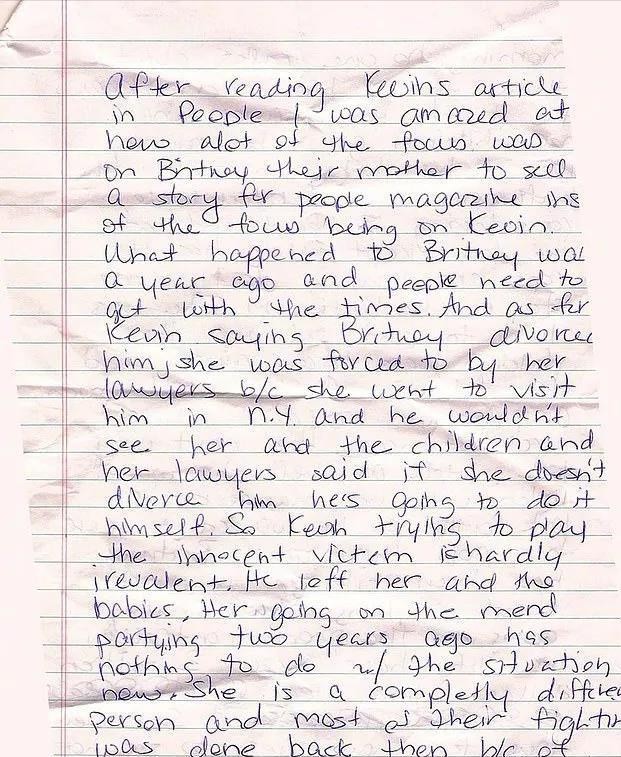 After reading Kevins article
in People I was amazed at
how alot of the focus was
on Britney their mother to sell
a story for people magazine ins
of the focus being on Kevin.
What happened to Britney was
a year ago and people need to
get with the times. And as for
Kevin saying Britney divorced
him, she was forced to by her
lawyers b/c she went to visit
him in N.Y. and he wouldn't
see her and the children and
her lawyers said if she doesn't
divorce him he's going to do it
himself. So Kevin trying to play
the innocent victem is hardly
irevalent. He left her and the
babies. Her going on the mend
partying two years ago has
nothing to do w/ the situation
now. She is a completly differe
person and most of their fightin
was done back then b/c of